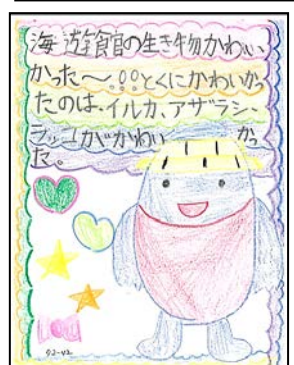 海遊館の生き物かわい
かった～。。。とくにかわいかっ
たのは、イルカ、アザラシ、
ラッコがかわいかっ
た。